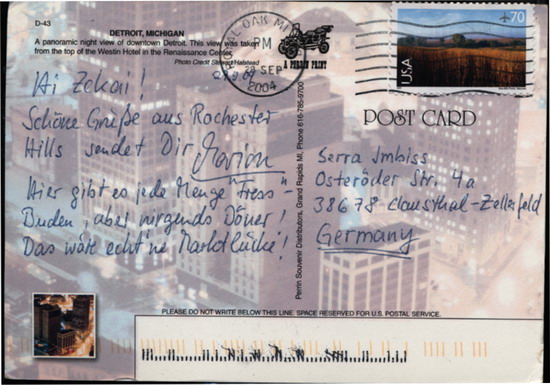 D-43
DETROIT, MICHIGAN
A panoramic night view of downtown Detroit. This view was taken
from the top of the Westin Hotel in the Renaissance Center.
Photo Credit Stewart/Halstead
AL OAK MI
PM
29 SEP
2004
A PERRIN PRINT
70
USA
POST CARD
Hi Zekai!
Schöne Grüße aus Rochester
Hills sendet Dir Marion
Hier gibt es jede Menge "Fress-"
Buden, aber nirgends Döner!
Das wäre echt 'ne Marktlücke!
Perrin Souvenir Distributors, Grand Rapids MI, Phone 616-785-9700
Serra Imbiss
Osteröder Str. 4a
38678 Clausthal-Zellerfeld
Germany
PLEASE DO NOT WRITE BELOW THIS LINE. SPACE RESERVED FOR U.S. POSTAL SERVICE.